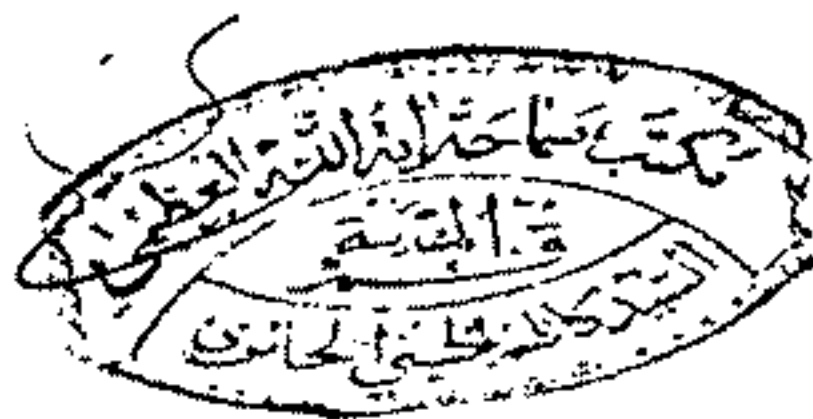 مكتب سماحة آية الله العظمى
قم المقدسة
السيد كاظم الحسيني الحائري